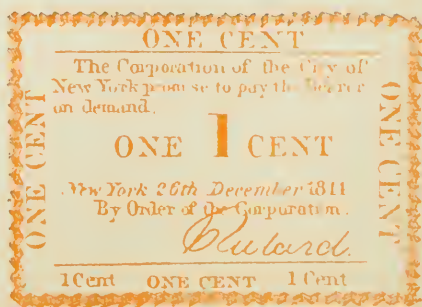 ONE CENT
The Corporation of the City of
New York promise to pay the Bearer
on demand.
ONE 1 CENT
New York 26th December 1814
By Order of the Corporation.
1 Cent ONE CENT 1 Cent
ONE CENT
ONE CENT